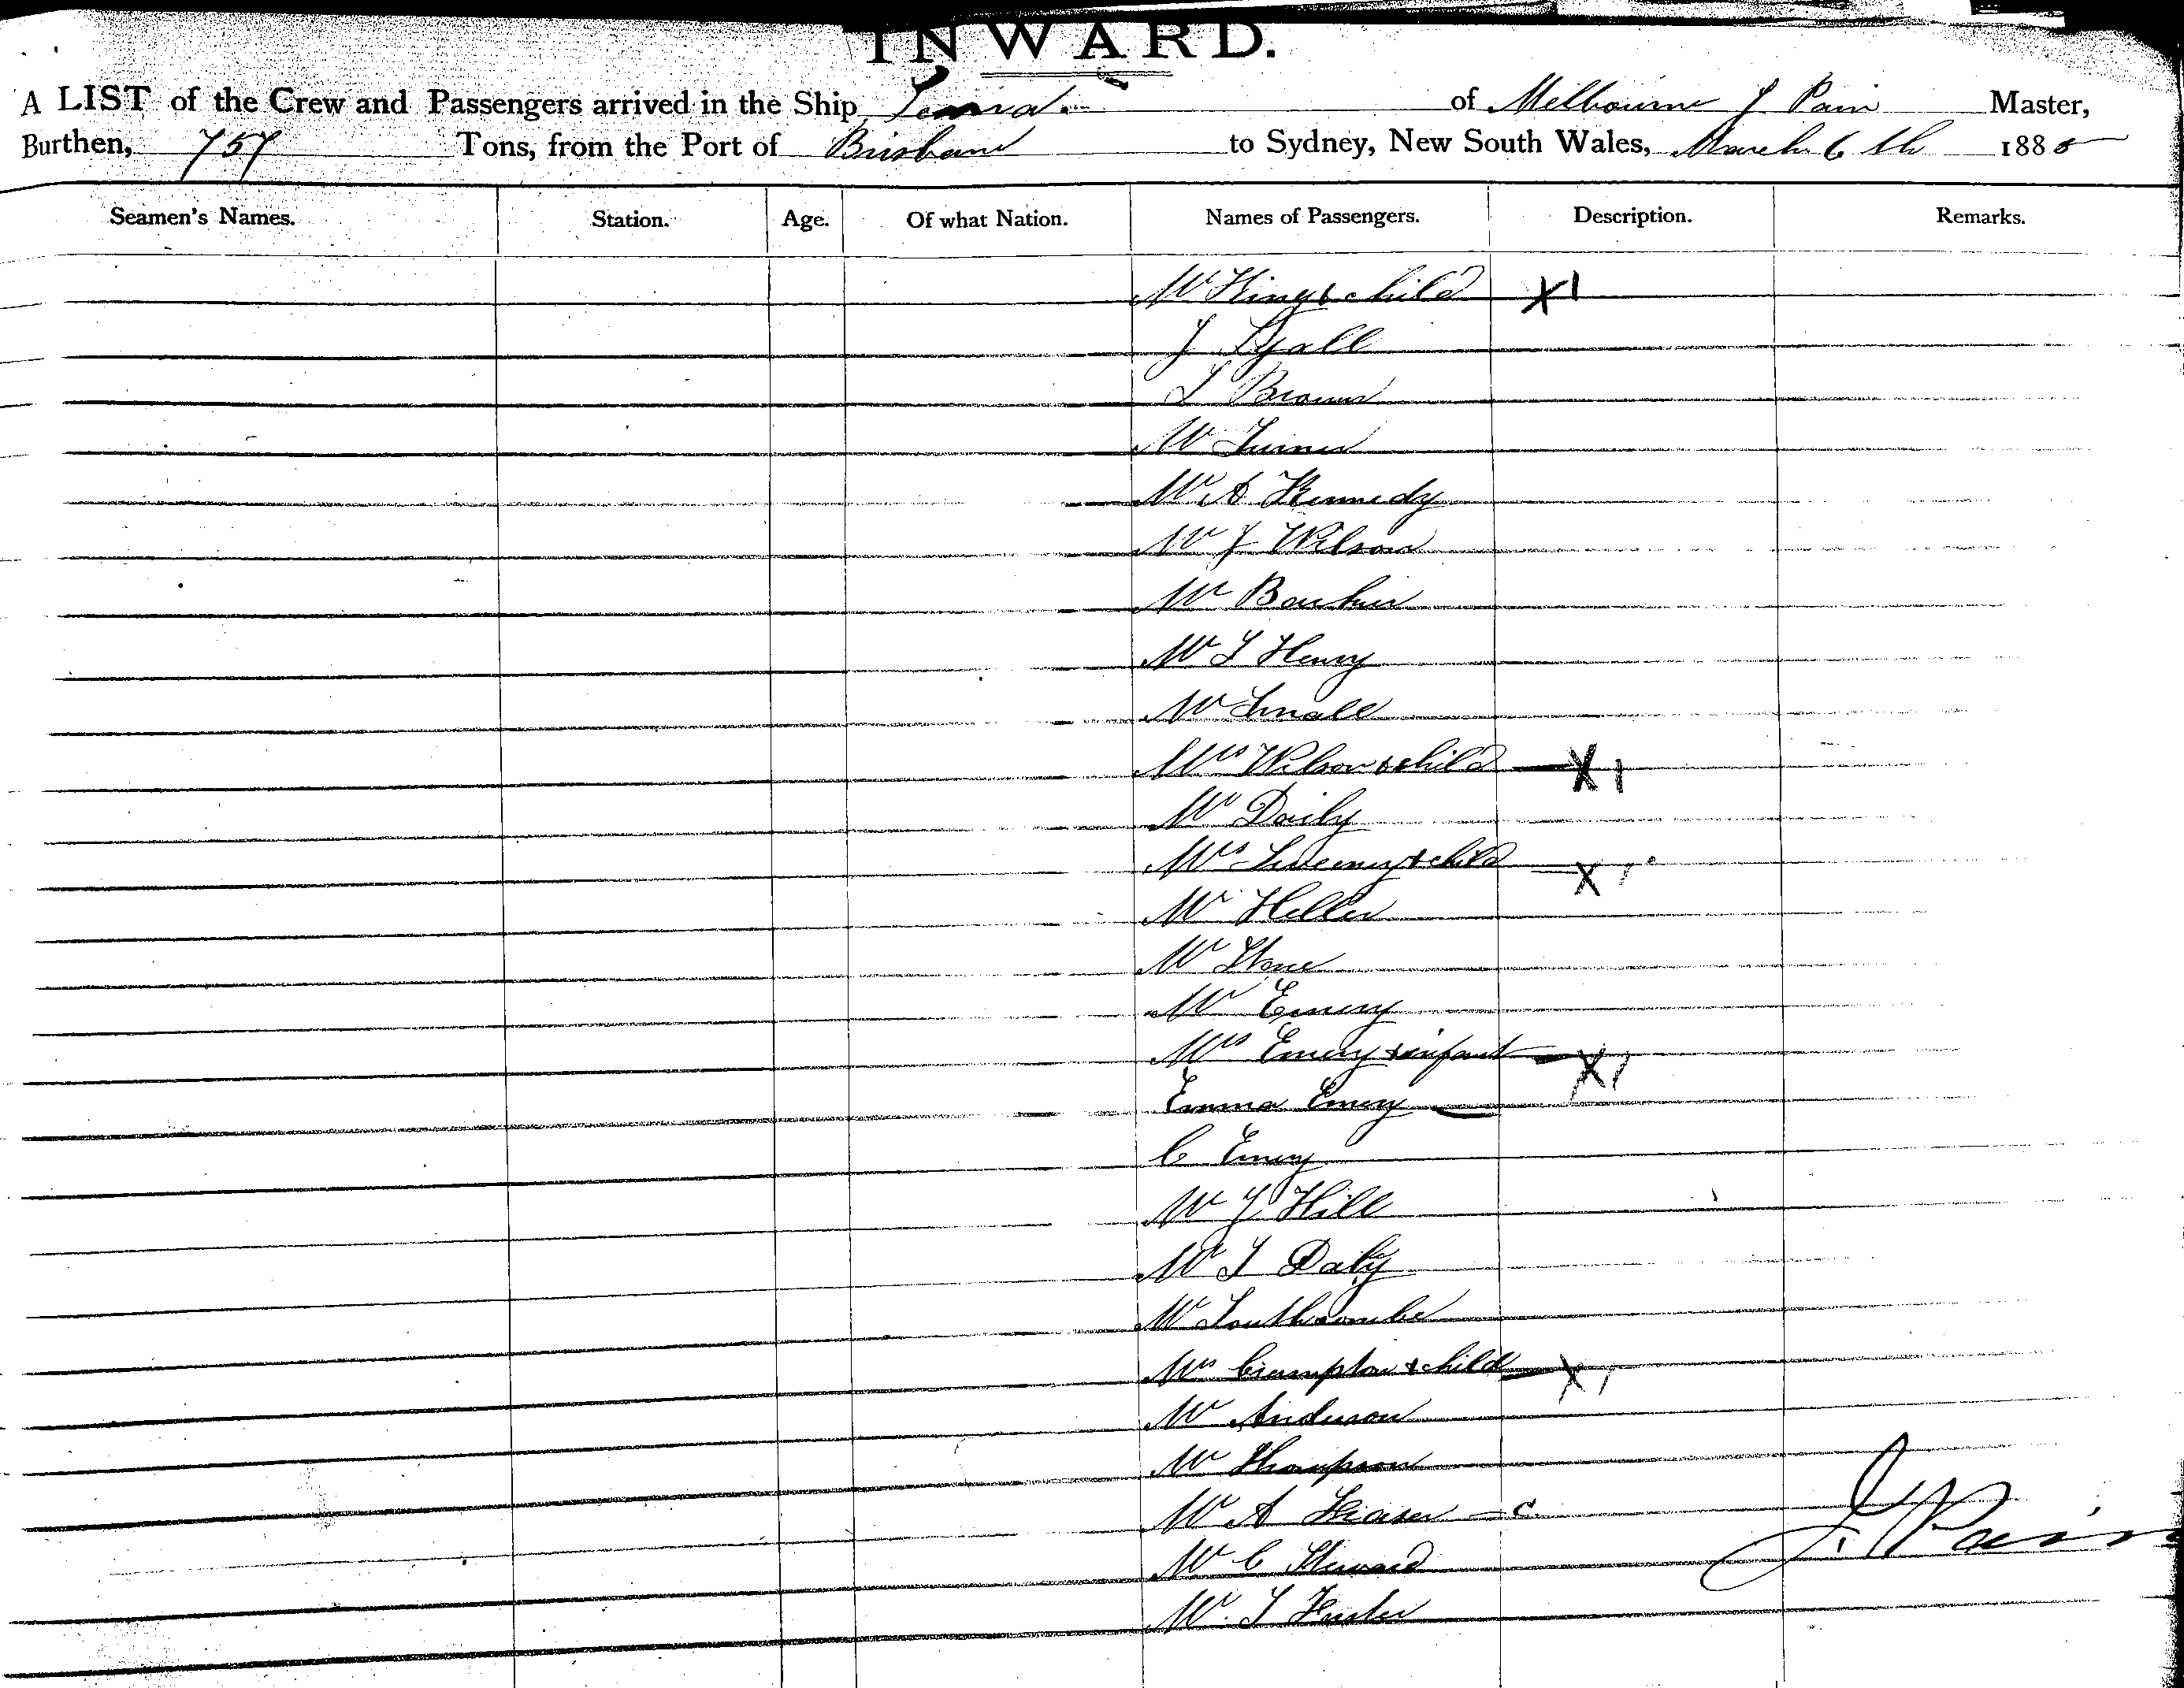 INWARD.
A LIST of the Crew and Passengers arrived in the Ship of Melbourne J Pain Master,
Burthen, 757 Tons, from the Port of Brisbane to Sydney, New South Wales, March 6th 188
Seamen's Names. Station. Age. Of what Nation. Names of Passengers. Description. Remarks.
Mr King & child X1
J Lyall
Brown
Mr Turner
Mr A Kennedy
Mr J Wilson
Mr
Mr Henry
Mr Small
Mrs Wilson & child X1
Mr Daily
Mrs Sweeney & child X1
Mr Heller
Mr
Mr Emery
Mrs Emery & infant X1
Emma Emery
C Emery
Mr J Hill
Mr Daly
Mr Southcombe
Mrs Crumpton & child X1
Mr Anderson
Mr Thompson
Mr A Fraser c
Mr C Steward
Mr
J. Pain